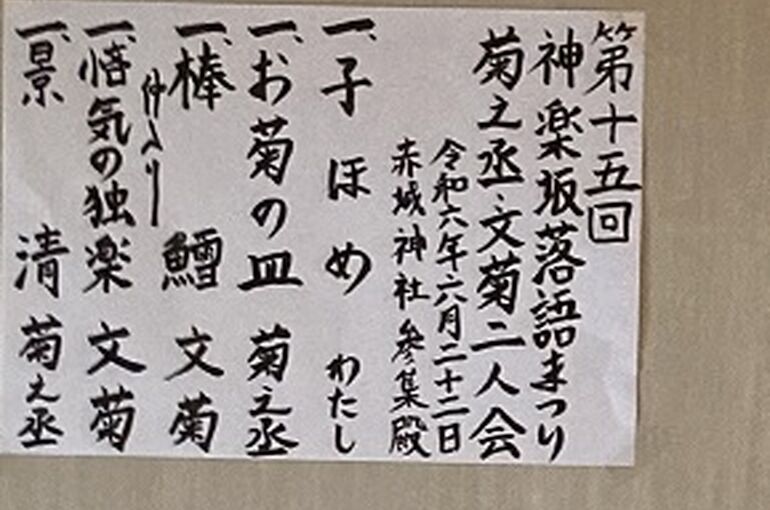 第十五回
神楽坂落語まつり
菊之丞・文菊二人会
令和六年六月二十二日
赤城神社 参集殿
一、子ほめ わたし
一、お菊の皿 菊之丞
一、棒鱈 文菊
仲入り
一、悋気の独楽 文菊
一、景清 菊之丞